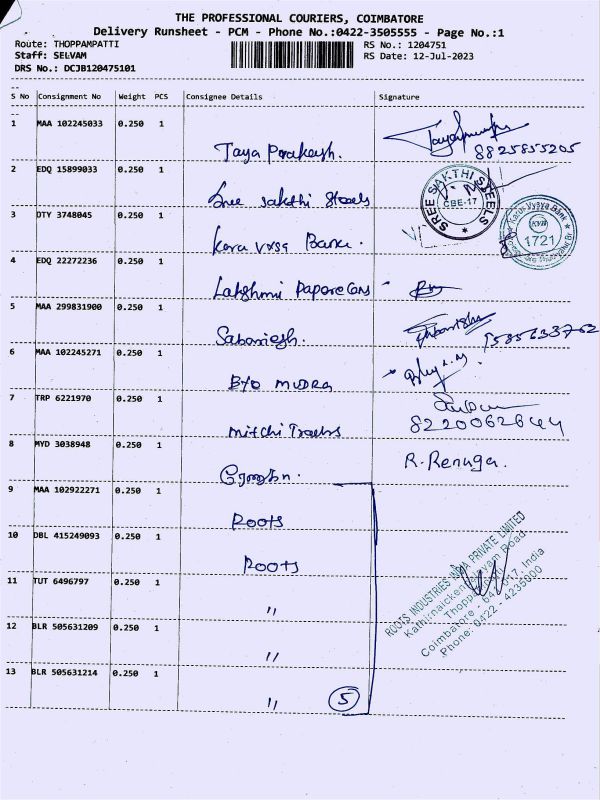 THE PROFESSIONAL COURIERS, COIMBATORE
Delivery Runsheet - PCM - Phone No.:0422-3505555 - Page No.:1
Route: THOPPAMPATTI RS No.: 1204751
Staff: SELVAM RS Date: 12-Jul-2023
DRS No.: DCJB120475101
S No Consignment No Weight PCS Consignee Details Signature
1 MAA 102245033 0.250 1
Jaya Prakash. 8825855205
2 EDQ 15899033 0.250 1
Sree Sakthi Steels
SREE SAKTHI STEELS
CBE-17
3 DTY 3748045 0.250 1
Karur Vysa Bank.
Karur Vysya Bank
1721
4 EDQ 22272236 0.250 1
Lakshmi Paporecons
5 MAA 299831900 0.250 1
Sabariegh.
6 MAA 102245271 0.250 1
B/o MUDRA
7 TRP 6221970 0.250 1
8220062644
Mitchi Traders
8 MYD 3038948 0.250 1
R. Renuga.
9 MAA 102922271 0.250 1
Roots
10 DBL 415249093 0.250 1
Roots
ROOTS INDUSTRIES INDIA PRIVATE LIMITED
Kathirnaickenpalayam Road
Thoppampatti
Coimbatore - 641 017 India
Phone: 0422 - 4235000
11 TUT 6496797 0.250 1
"
12 BLR 505631209 0.250 1
"
13 BLR 505631214 0.250 1
" 5